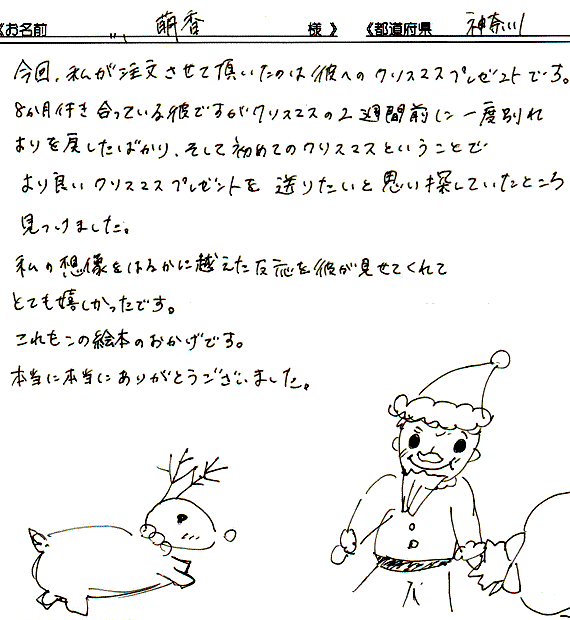 《お名前 萌香 様》 《都道府県 神奈川
今回、私が注文させて頂いたのは彼へのクリスマスプレゼントです。
8か月付き合っている彼ですがクリスマスの2週間前に一度別れ
よりを戻したばかり、そして初めてのクリスマスということで
より良いクリスマスプレゼントを送りたいと思い探していたところ
見つけました。
私の想像をはるかに越えた反応を彼が見せてくれて
とても嬉しかったです。
これもこの絵本のおかげです。
本当に本当にありがとうございました。